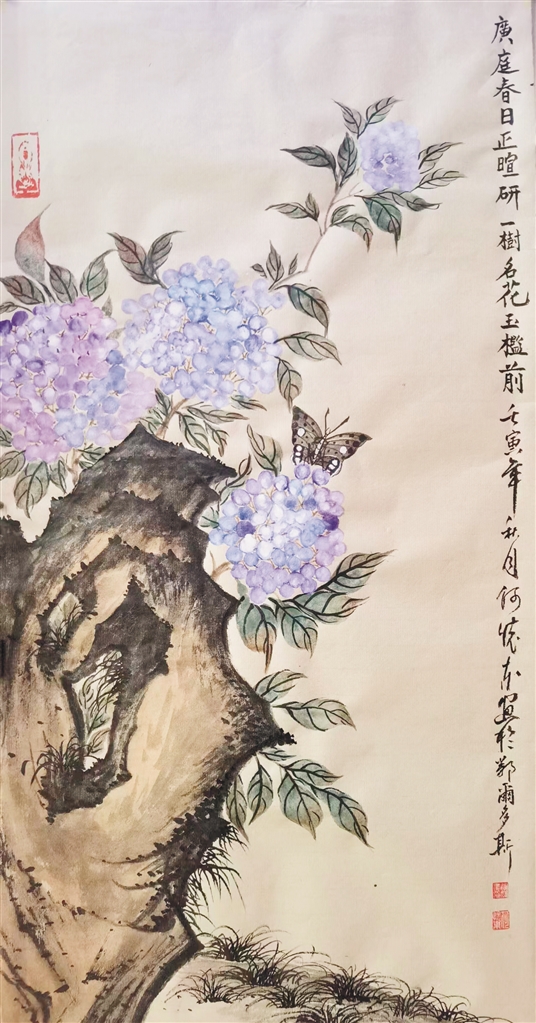 廣庭春日正暄研一樹名花玉檻前壬寅年秋月何成東寫於鄂爾多斯